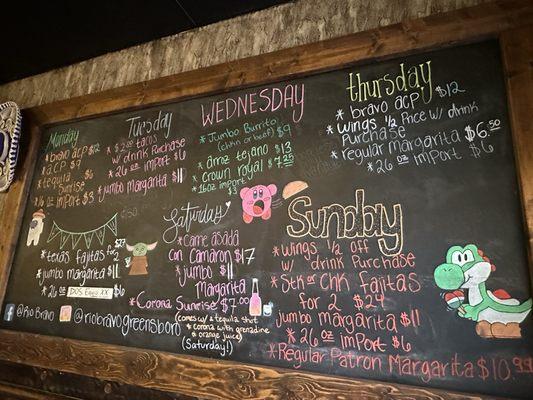 Monday
* bravo ACP $12
* ACP $9
* tequila Sunrise $8
* 16 oz import $3
Tuesday
* $2.00 tacos
w/ drink Purchase
* 26 oz import $6
* jumbo Margarita $11
WEDNESDAY
* Jumbo Burrito
(chkn or beef) $9
* arroz tejano $13
* crown royal $7.25
* 16oz import $3
thursday
* bravo ACP $12
* wings 1/2 Price w/ drink
Purchase
* regular margarita $6.50
* 26 oz import $6
* texas fajitas for
2
* jumbo margarita $11
* 26 oz DOS Equis $6
Saturday
* Carne Asada
Con Camaron $17
* jumbo $11
Margarita
* Corona Sunrise $7.00
(comes w/ a tequila shot
* corona with grenadine
& orange juice)
(Saturday!)
SUNDAY
* WINGS 1/2 off
w/ drink Purchase
* Stk or CHK Fajitas
for 2 $24
* Jumbo Margarita $11
* 26 oz IMPORT $6
* Regular Patron Margarita $10.99
@Rio Bravo
@riobravogreensboro